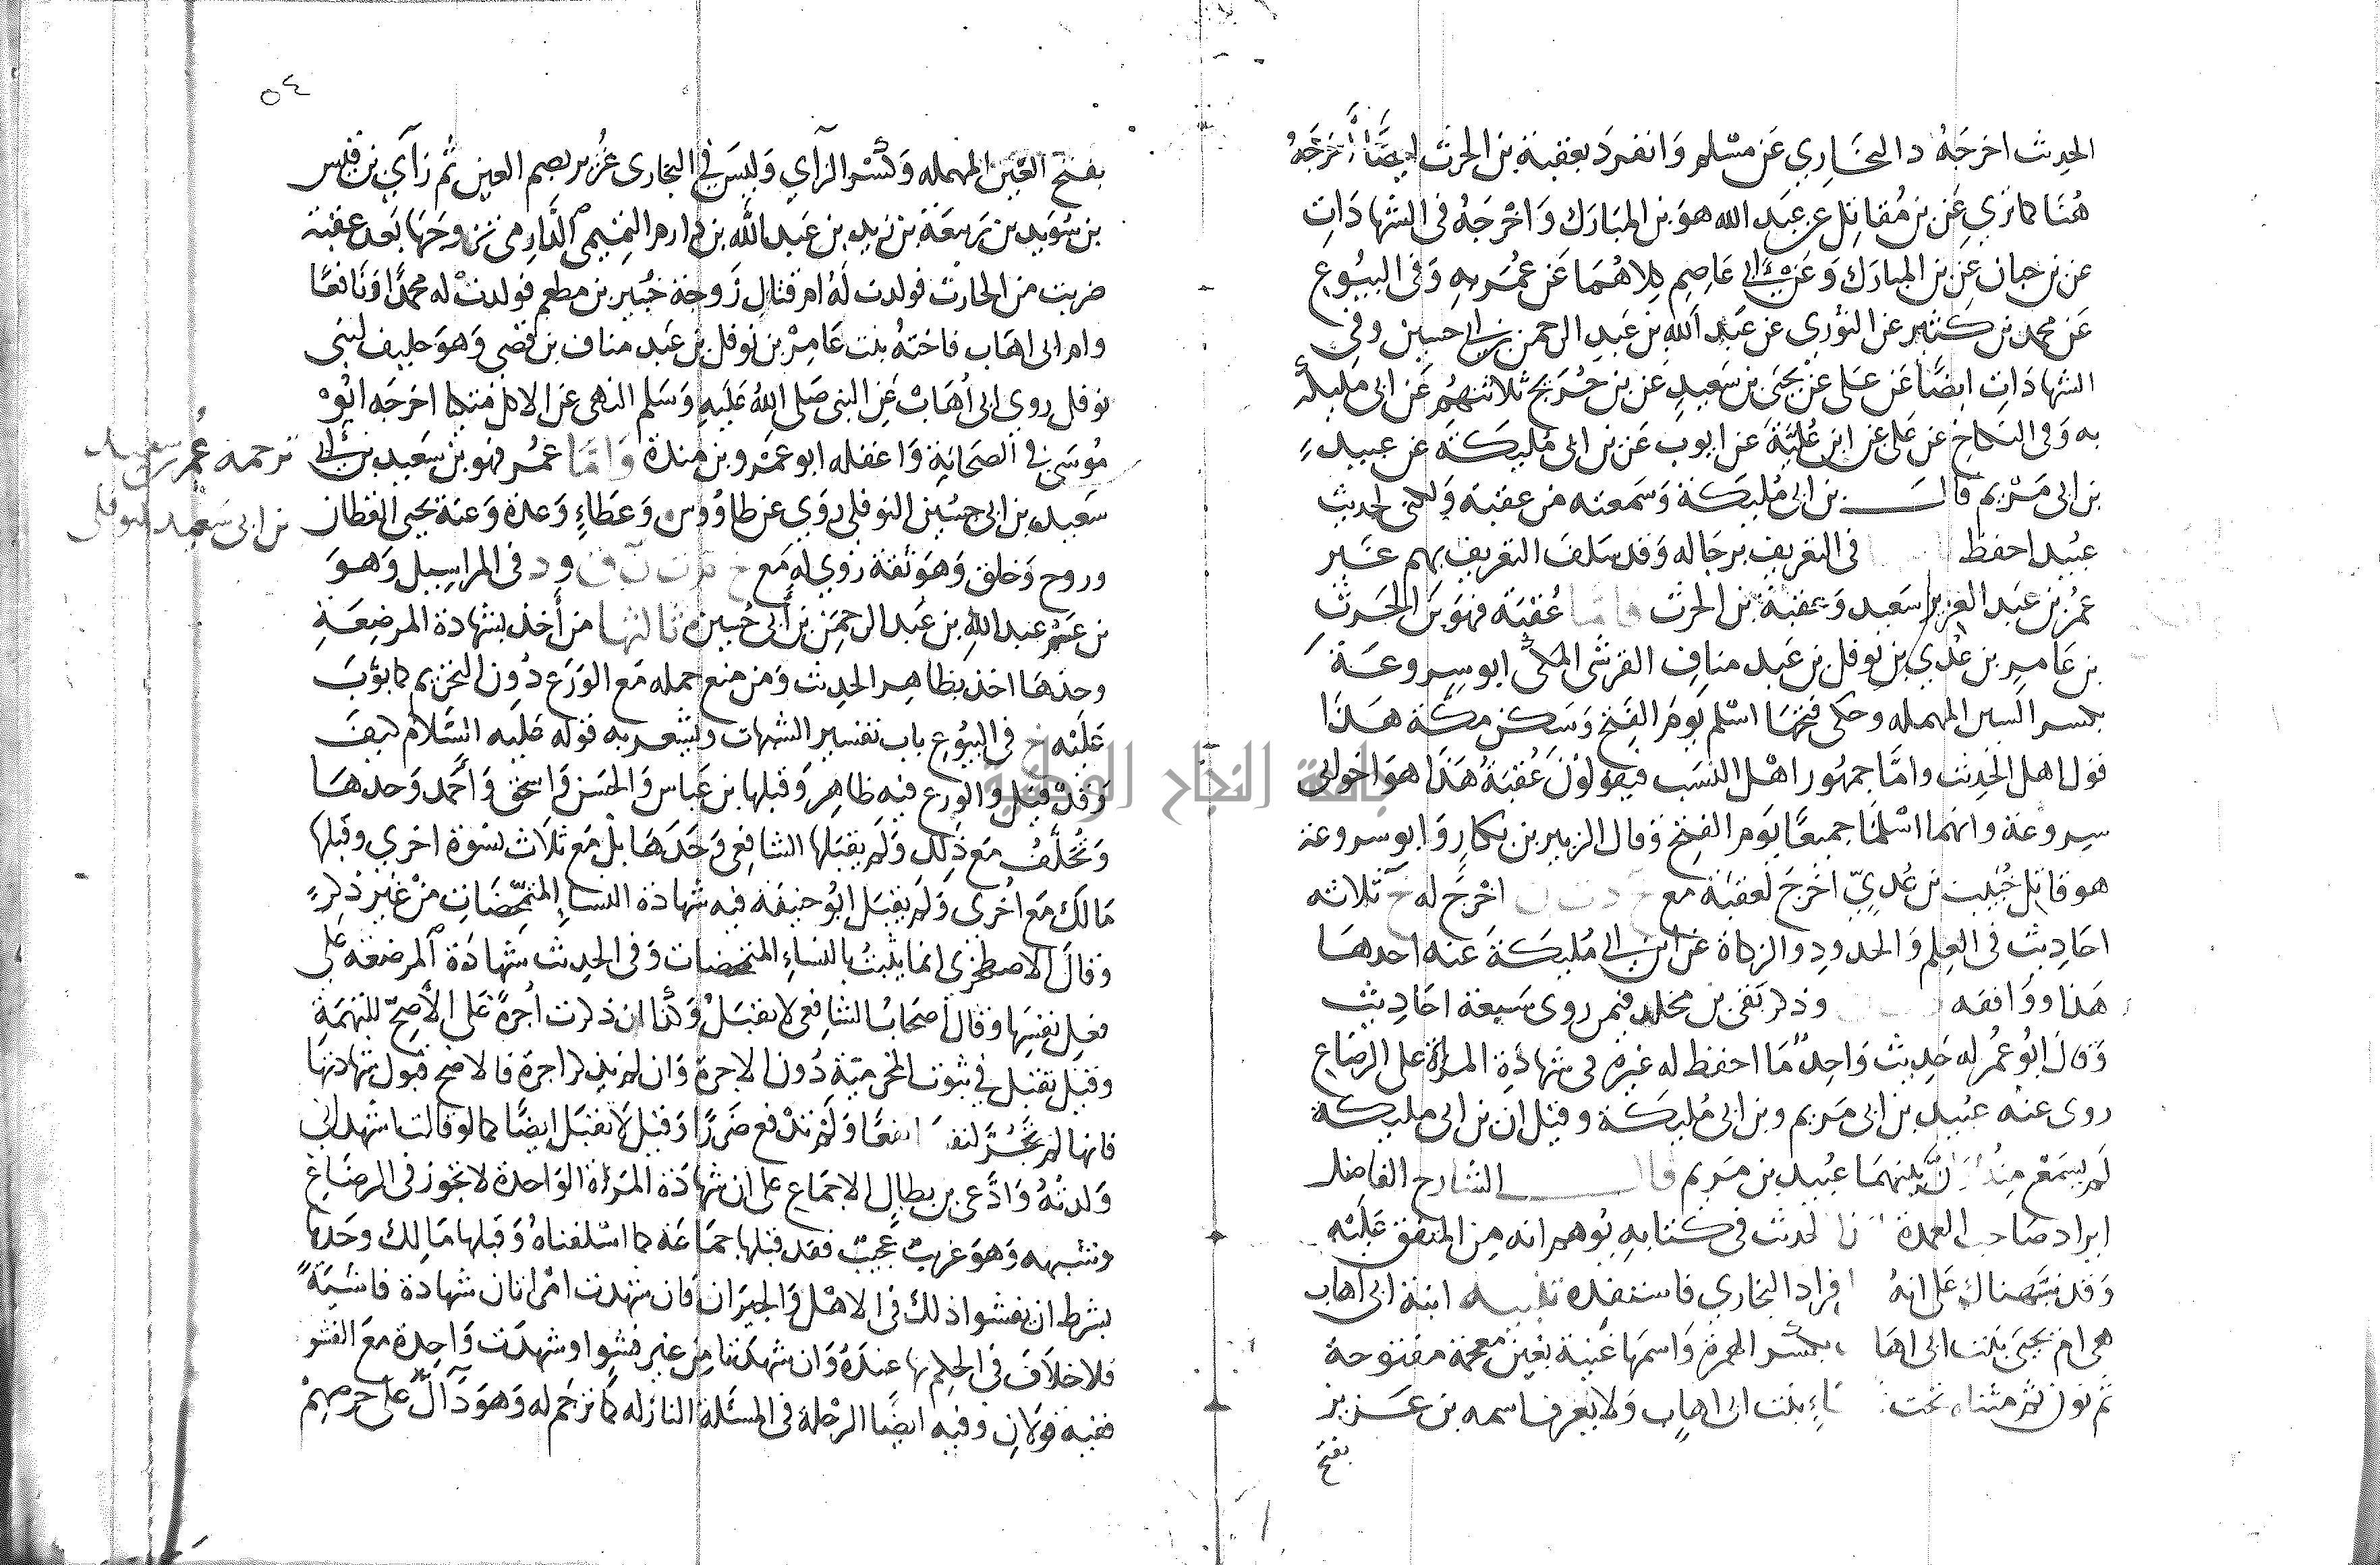 الحديث اخرجه د البخاري عن مسلم وانفرد بعقبة بن الحرث ايضا أخرجه
هنا كما تري عن بن مقاتل عن عبد الله هو بن المبارك واخرجه في الشهادات
عن بن حبان عن بن المبارك وعن ابي عاصم كلاهما عن عمر به وفي البيوع
عن محمد بن كثير عن الثوري عن عبد الله بن عبد الرحمن بن ابي حسين وفي
الشهادات ايضا عن علي عن يحيى بن سعيد عن بن جريج ثلاثتهم عن ابي مليكة
به وفي النكاح عن علي عن ابن علية عن ايوب عن بن ابي مليكة عن عبيد
بن ابي مريم قال بن ابي مليكة وسمعته من عقبة ولكني لحديث
عبيد احفظ في التعريف برجاله وقد سلف التعريف بهم غير
عمر بن عبد العزيز سعيد وعقبة بن الحرث فاما عقبة فهو بن الحرث
بن عامر بن عدي بن نوفل بن عبد مناف القرشي المكي ابو سروعة
بكسر السين المهمله وحكى فتحها اسلم يوم الفتح وسكن مكة هذا
قول اهل الحديث واما جمهور اهل النسب فيقولون عقبة هذا هو اخو ابي
سروعة وانهما اسلما جميعا يوم الفتح وقال الزبير بن بكار وابو سروعة
هو قاتل خبيب بن عدي اخرج لعقبة مع خ د ت ن اخرج له خ ثلاثه
احاديث في العلم والحدود والزكاة عن ابن ابي مليكة عنه احدها
هذا ووافقه وذكر بقي بن مخلد فيمن روى سبعة احاديث
وقال ابو عمر له حديث واحد ما احفظ له غيره في شهادة المراة على الرضاع
روى عنه عبيد بن ابي مريم وبن ابي مليكة وقيل ان بن ابي مليكة
لم يسمع منه وان بينهما عبيد بن مريم قال الشارح الفاضل
ايراد صاحب العمدة الحديث في كتابه يوهم انه من المتفق عليه
وقد نبهناك على انه افراد البخاري فاستفده تنبيه ابنة ابي اهاب
هي ام يحيى بنت ابي اها بكسر الهمزة واسمها غنية بغين معجمة مفتوحة
ثم نون ثم مثناه تحت بنت ابي اهاب ولا يعرف اسمه بن عزيز
بفتح
٥٤
بفتح العين المهمله وكسر الزاي وليس في البخاري عزيز بضم العين ثم زاي بن قيس
بن سويد بن ربيعة بن زيد بن عبد الله بن دارم التميمي الدارمي تزوجها بعد عقبة
ضريب من الحارث فولدت له ام قتال زوجة جبير بن مطعم فولدت له محمدا ونافعا
وام ابي اهاب فاخته بنت عامر بن نوفل بن عبد مناف بن قصي وهو حليف لبني
نوفل روى ابي أهاب عن النبي صلى الله عليه وسلم النهي عن الاكل متكيا اخرجه ابو
موسى في الصحابة واغفله ابو عمرو بن مندة واما عمر فهو بن سعيد بن ابي
ترجمه عمر بن سعيد
بن ابي سعيد النوفلي
سعيد بن ابي حسين النوفلي روي عن طاووس وعطاء وعدة وعنه يحيى القطان
وروح وخلق وهو ثقة روي له مع خ م ت ن ق و د في المراسيل وهو
بن عم عبد الله بن عبد الرحمن بن أبي حسين ثالثها من أخذ بشهادة المرضعة
وحدها اخذ بظاهر الحديث ومن منع حمله مع الورع دون التحريم كما بوب
عليه خ في البيوع باب تفسير الشبهات ويشعر به قوله عليه السلام كيف
وقد قيل والورع فيه ظاهر وقبلها بن عباس والحسن واسحق وأحمد وحدها
وتحلف مع ذلك ولم يقبلها الشافعي وحدها بل مع ثلاث نسوة اخري وقبلها
مالك مع اخرى ولم يقبل ابو حنيفة فيه شهادة النسا المتمحضات من غير ذكر
وقال الاصطخري انما يثبت بالنساء المتمحضات وفي الحديث شهادة المرضعة على
فعل نفسها وقال أصحاب الشافعي لا تقبل وكذا ان ذكرت اجرة على الأصح للتهمة
وقيل تقبل في ثبوت المحرمية دون الاجرة وان لم تذكر اجرة فالاصح قبول شهادتها
فانها لم تجر لنفسها نفعا ولم تدفع ضررا وقيل لا تقبل ايضا كما لو قالت اشهد اني
ولدته وادعى بن بطال الاجماع على ان شهادة المراة الواحدة لا تجوز في الرضاع
وشبهه وهو غريب عجيب فقد قبلها جماعة كما اسلفناه وقبلها مالك وحدها
بشرط ان يفشوا ذلك في الاهل والجيران فان شهدت امراتان شهادة فاشية
فلا خلاف في الحكم بها عنده وان شهدتا من غير فشوا وشهدت واحدة مع الفشو
ففيه قولان وفيه ايضا الرحلة في المسئلة النازله كما ترجم له وهو دال على حرصهم